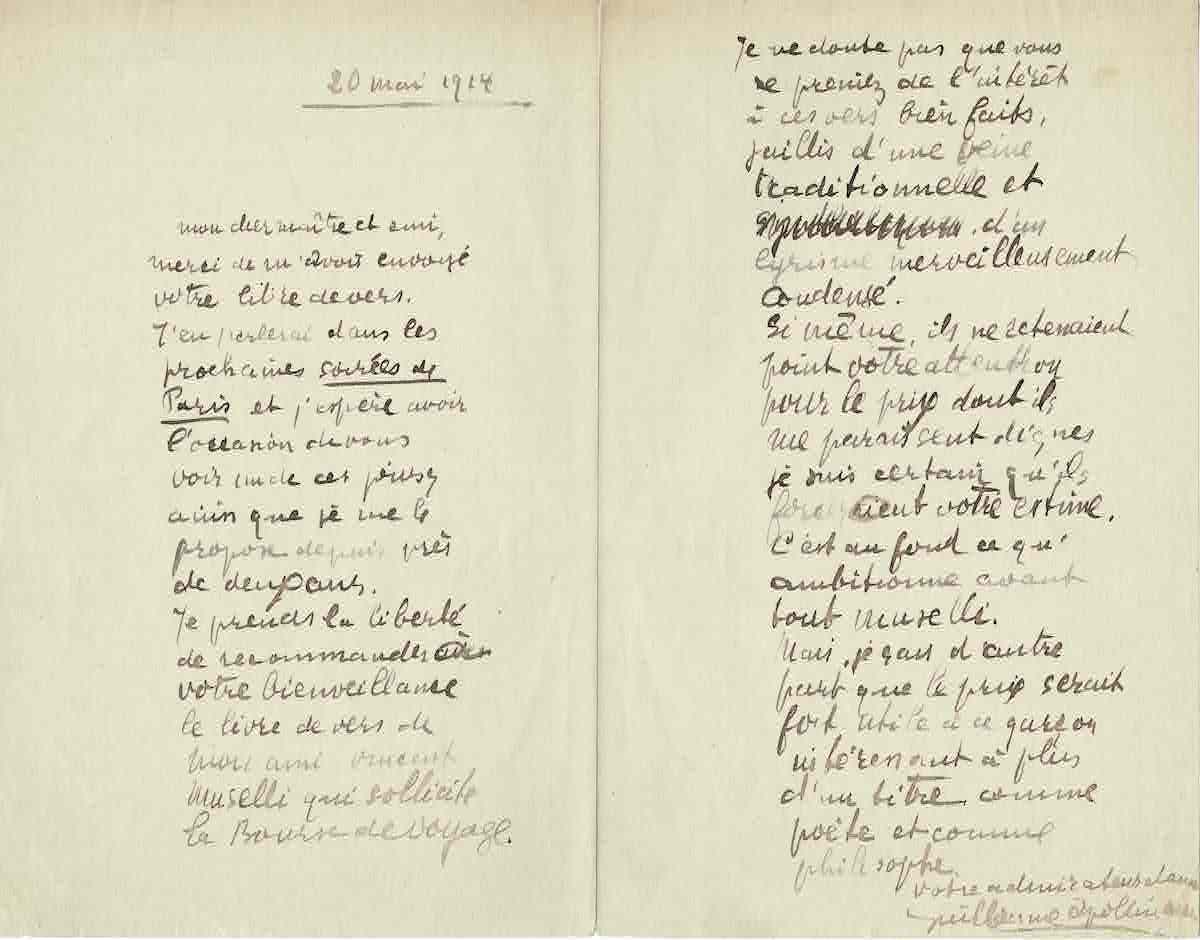 20 mai 1914
mon cher maître et ami,
merci de m'avoir envoyé
votre livre de vers.
J'en parlerai dans les
prochaines soirées de
Paris et j'espère avoir
l'occasion de vous
voir un de ces jours
ainsi que je me le
propose depuis près
de deux ans.
Je prends la liberté
de recommander à
votre bienveillance
le livre de vers de
mon ami vincent
Muselli qui sollicite
la Bourse de Voyage.
Je ne doute pas que vous
ne preniez de l'intérêt
à ces vers bien faits,
jaillis d'une veine
traditionnelle et
d'un
lyrisme merveilleusement
condensé.
Si même, ils ne retenaient
point votre attention
pour le prix dont ils
me paraissent dignes
je suis certain qu'ils
forceraient votre estime.
C'est au fond ce qu'
ambitionne avant
tout Muselli.
Mais, je sais d'autre
part que le prix serait
fort utile à ce garçon
intéressant à plus
d'un titre comme
poète et comme
philosophe.
votre admirateur et ami
Guillaume Apollinaire